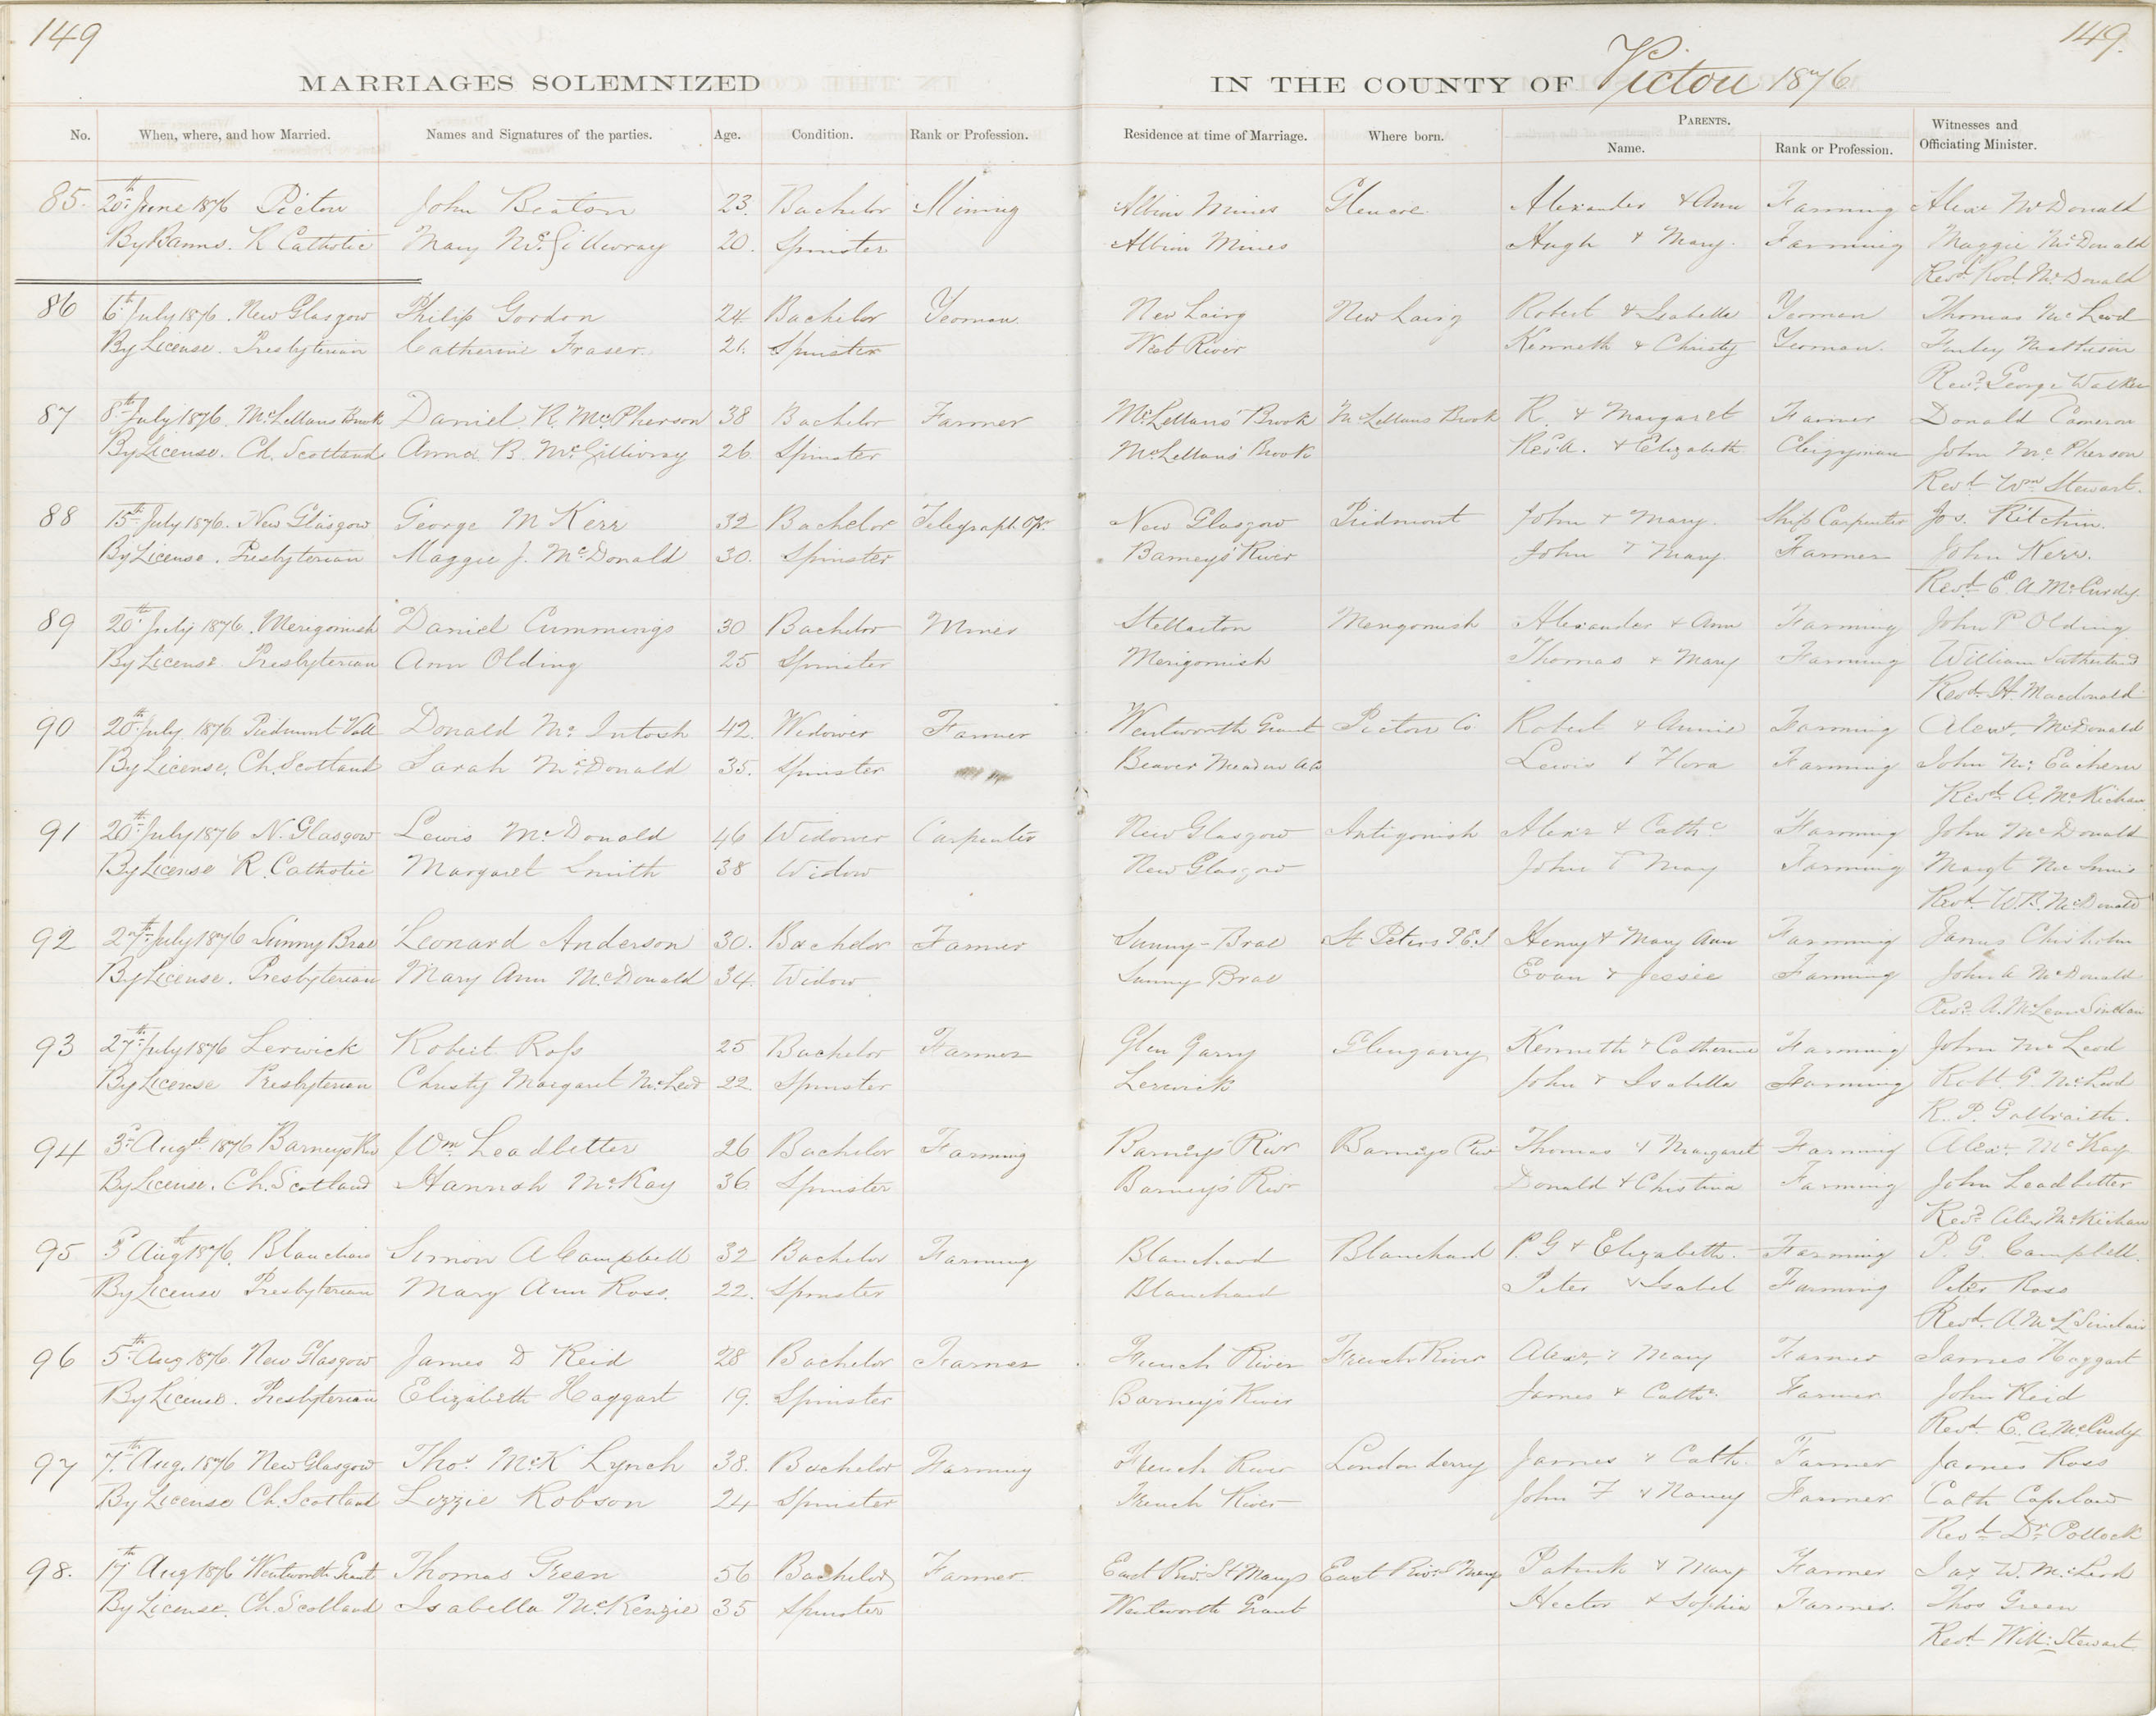 149
149.
MARRIAGES SOLEMNIZED IN THE COUNTY OF Pictou 1876
No. When, where, and how Married. Names and Signatures of the parties. Age. Condition. Rank or Profession. Residence at time of Marriage. Where born. PARENTS. Name. Rank or Profession. Witnesses and Officiating Minister.
85. 20th June 1876 Pictou John Beaton 23. Bachelor Mining Albion Mines Glencoe Alexander & Ann Farming Alexr McDonald
By Banns. R Catholic Mary McGillivray 20. Spinster Albion Mines Hugh & Mary. Farming Maggie McDonald
Revd Rod. McDonald
86 6th July 1876. New Glasgow Philip Gordon 24 Bachelor Yeoman New Lairg New Lairg Robert & Isabella Yeoman Thomas McLeod
By License. Presbyterian Catherine Fraser 21. Spinster West River Kenneth & Christy Yeoman. Finley Matheson
Revd. George Walker
87 8th July 1876. McLellans Brook Daniel R. McPherson 38 Bachelor Farmer McLellans' Brook McLellans Brook R. & Margaret Farmer Donald Cameron
By License. Ch. Scotland Anna B. McGillivray 26 Spinster McLellans' Brook Rev. A. & Elizabeth Clergyman John McPherson
Revd Wm Stewart.
88 15th July 1876. New Glasgow George M Kerr 32 Bachelor Telegraph Opr. New Glasgow Piedmont John & Mary. Ship Carpenter Jos. Ritchin.
By License. Presbyterian Maggie J. McDonald 30. Spinster Barneys' River John & Mary Farmer John Kerr.
Revd. E. A. McCurdy
89 20th July 1876. Merigomish Daniel Cummings 30 Bachelor Miner Stellarton Merigomish Alexander & Ann Farming John P Olding
By License Presbyterian Ann Olding 25 Spinster Merigomish Thomas & Mary Farming William Sutherland
Revd. H. Macdonald
90 20th July 1876 Piedmont Vall Donald McIntosh 42. Widower Farmer Wentworth Grant Pictou Co Robert & Annie Farming Alexr. McDonald
By License. Ch. Scotland Sarah McDonald 35. Spinster Beaver Meadow Lewis & Flora Farming John McEachern
Revd A. McKichan
91 20th July 1876 N. Glasgow Lewis McDonald 46 Widower Carpenter New Glasgow Antigonish Alexr & Cathe Farming John McDonald
By License R. Catholic Margaret Smith 38 Widow New Glasgow John & Mary Farming Margt McInnis
Revd. W. B. McDonald
92 27th July 1876 Sunny Brae Leonard Anderson 30. Bachelor Farmer Sunny-Brae St Peters P.E.I Henry & Mary Ann Farming James Chisholm
By License. Presbyterian Mary Ann McDonald 34. Widow Sunny-Brae Evan & Jessie Farming John A McDonald
Revd. A. McLean Sinclair
93 27th July 1876 Lerwick Robert Ross 25 Bachelor Farmer Glen Garry Glengarry Kenneth & Catherine Farming John McLeod
By License Presbyterian Christy Margaret McLeod 22 Spinster Lerwick John & Isabella Farming Robt. G. McLeod
R. P. Galbraith.
94 3d Augst 1876 Barneys Riv Wm Leadbetter 26 Bachelor Farming Barneys' River Barneys River Thomas & Margaret Farming Alexr. McKay
By License. Ch. Scotland Hannah McKay 36. Spinster Barneys' River Donald & Christina Farming John Leadbetter
Revd. Alex McKichan
95 3d Augt 1876. Blanchard Simon A Campbell 32 Bachelor Farming Blanchard Blanchard P. G & Elizabeth Farming P. G. Campbell.
By License Presbyterian Mary Ann Ross. 22. Spinster Blanchard Peter & Isabel Farming Peter Ross
Revd. A. McL Sinclair
96 5th Aug 1876. New Glasgow James D Reid 28 Bachelor Farmer French River French River Alexr. & Mary Farmer James Haggart
By License. Presbyterian Elizabeth Haggart 19. Spinster Barney's River James & Cathe. Farmer John Reid
Revd. E. A. McCurdy
97 7th Aug. 1876 New Glasgow Thos. McK Lynch 38. Bachelor Farming French River Londonderry James & Cath. Farmer James Ross
By License Ch. Scotland Lizzie Robson 24 Spinster French River John F & Nancy Farmer Cath Copeland
Revd Dr. Pollock
98. 17th Aug 1876 Wentworth Grant Thomas Green 56 Bachelor Farmer East Riv. St Marys East River St Marys Patrick & Mary Farmer Jas. W. McLeod
By License. Ch. Scotland Isabella McKenzie 35 Spinster Wentworth Grant Hector & Sophia Farmer. Thos Green
Revd. Willm Stewart